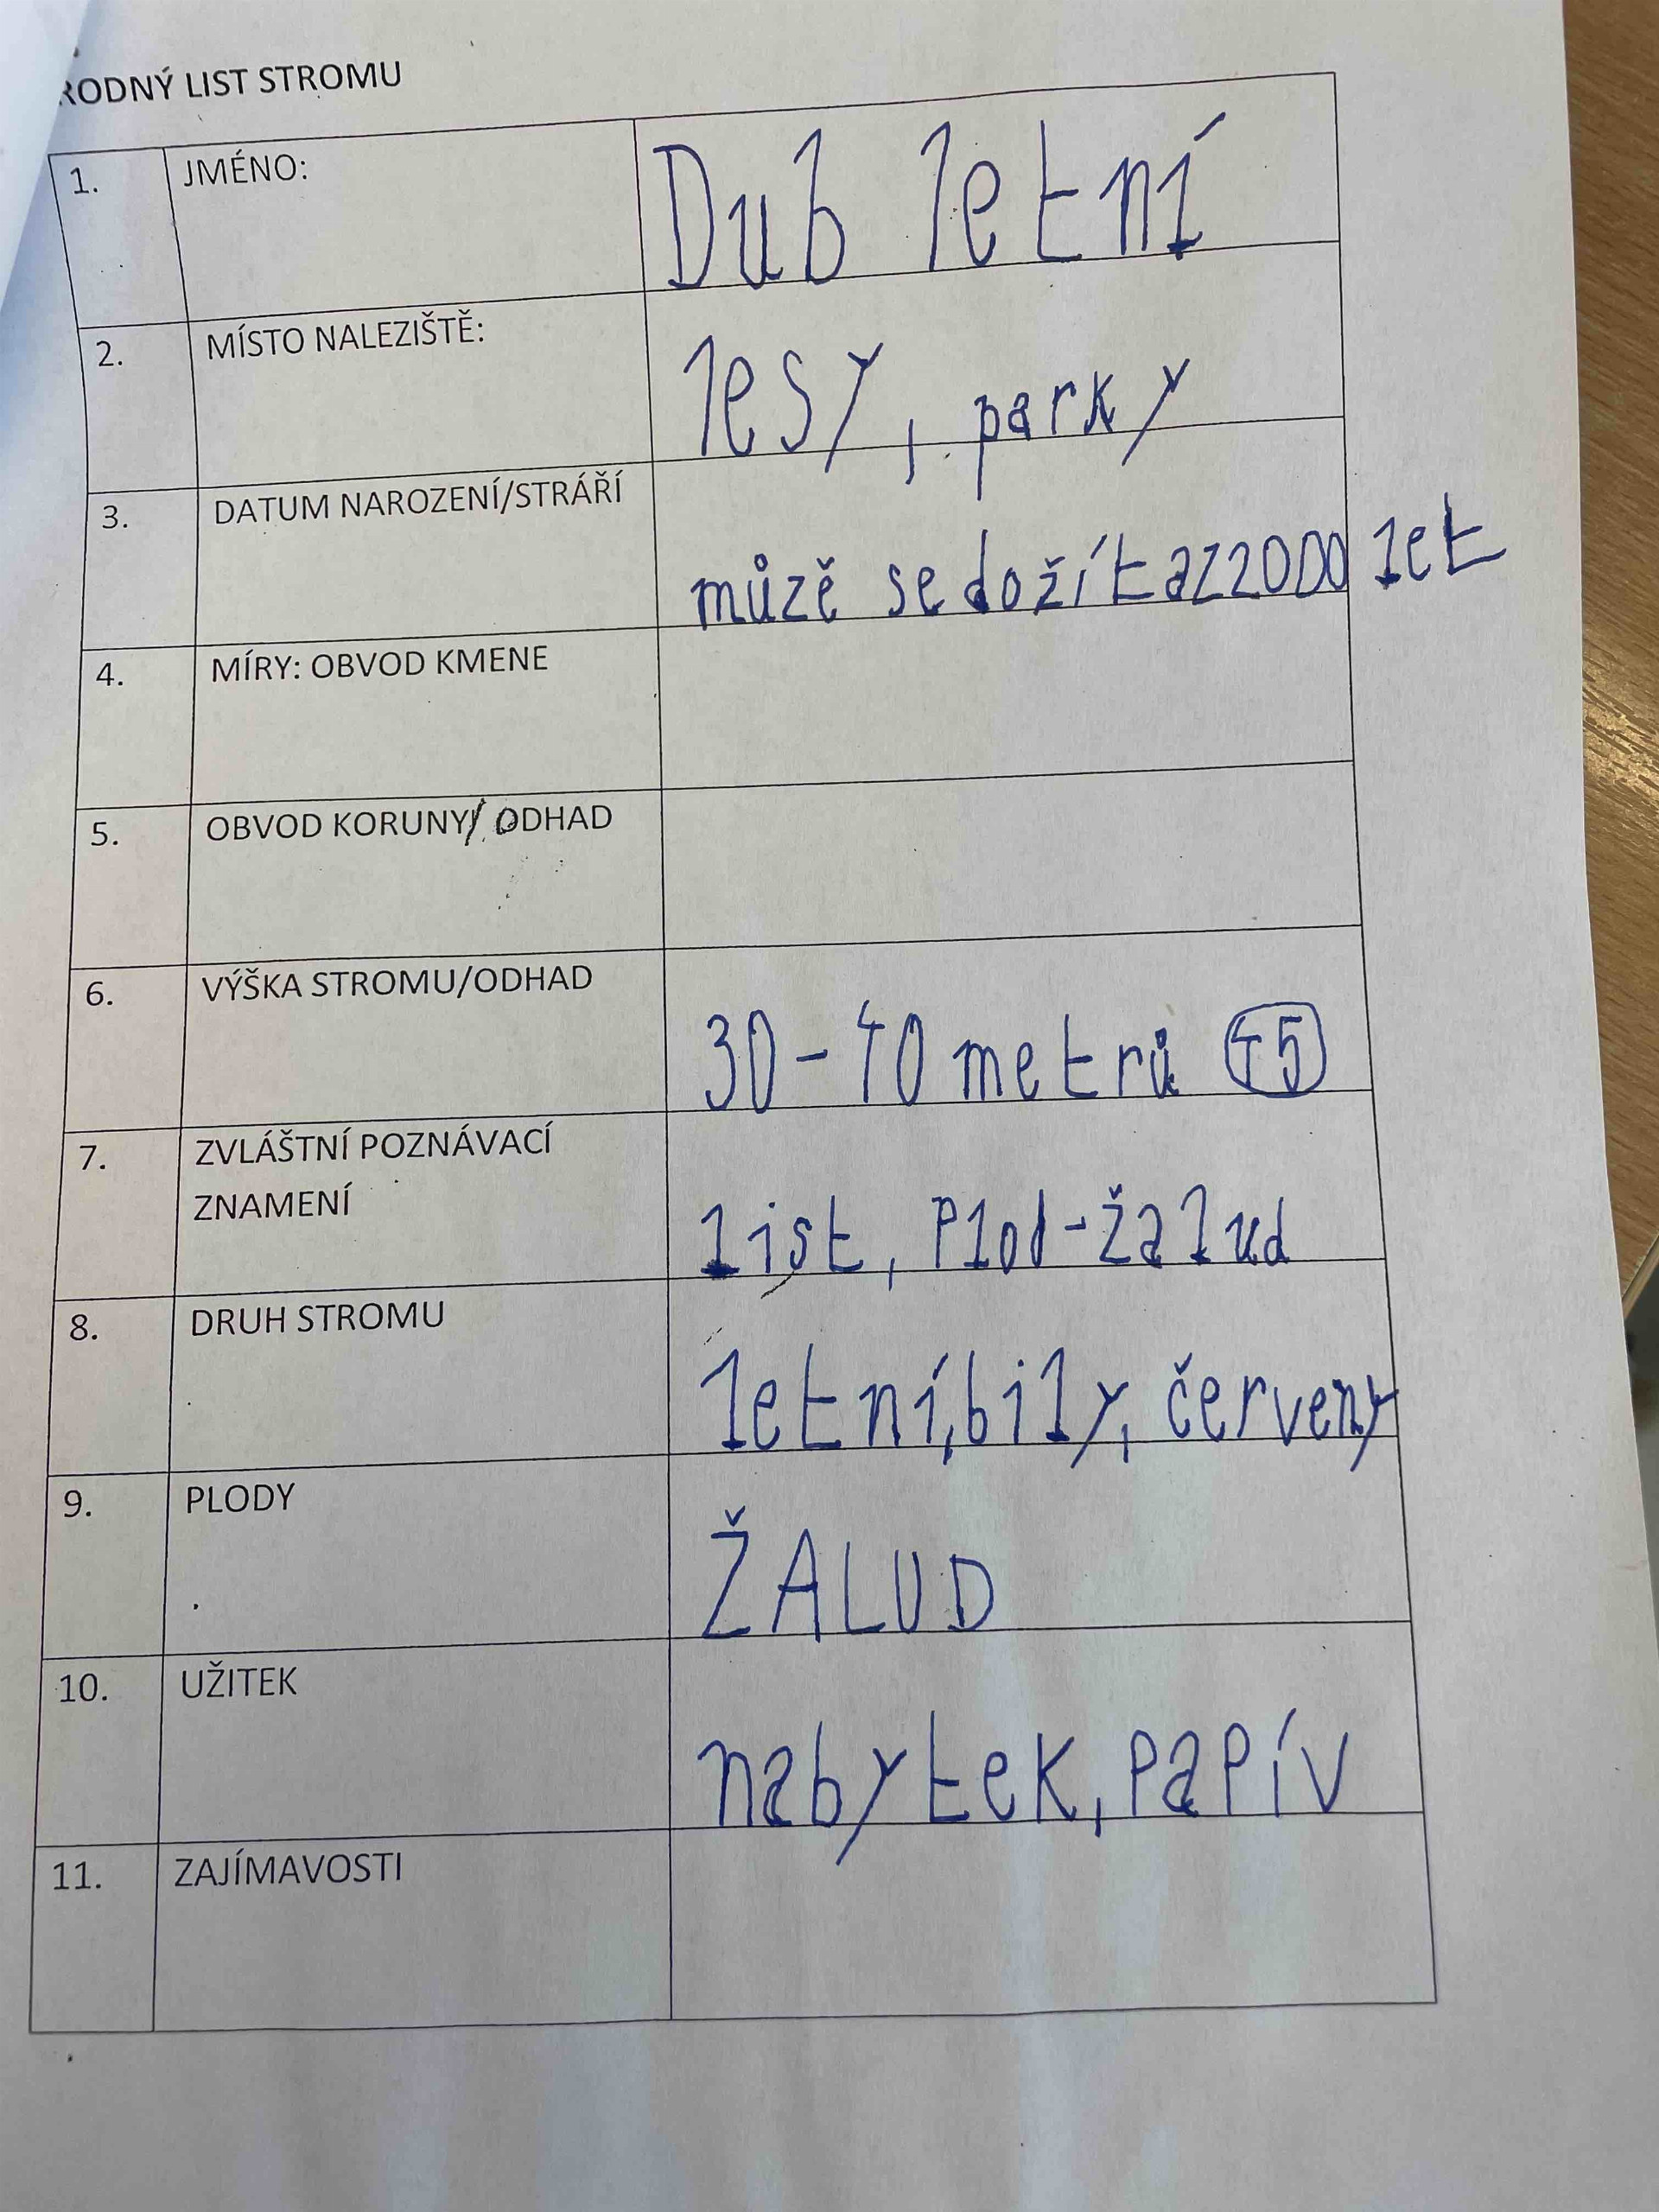 RODNÝ LIST STROMU
1. JMÉNO: Dub letní
2. MÍSTO NALEZIŠTĚ: lesy, parky
3. DATUM NAROZENÍ/STRÁŘÍ můzě se dožít az 2000 let
4. MÍRY: OBVOD KMENE
5. OBVOD KORUNY/ ODHAD
6. VÝŠKA STROMU/ODHAD 30-40 metrů 45
7. ZVLÁŠTNÍ POZNÁVACÍ
ZNAMENÍ list, Plod-žalud
8. DRUH STROMU letní, bily, červeny
9. PLODY ŽALUD
10. UŽITEK nabytek, papív
11. ZAJÍMAVOSTI